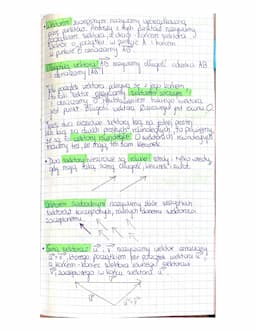 Wektorem zaczepionym nazywamy uporządkowaną
parę punktów. Pierwszy z tych punktów nazywamy
początkiem wektora, a drugi - końcem wektora.
Wektor o początku w punkcie A i końcem
w punkcie B oznaczamy AB.
Długością wektora AB nazywamy długość odcinka AB
i oznaczamy |AB|
Jeśli początek wektora pokrywa się z jego końcem
to taki wektor nazywamy wektorem zerowym
i oznaczamy 0. Przedstawieniem takiego wektora
jest punkt. Długość wektora zerowego jest równa 0.
Jeżeli dwa niezerowe wektory leżą na jednej prostej
albo leżą na dwóch prostych równoległych, to powiemy,
że są to wektory równoległe. O wektorach równoległych
mówimy też, że mają ten sam kierunek.
Dwa wektory niezerowe są równe wtedy i tylko wtedy,
gdy mają taką samą długość, kierunek i zwrot.
Wektorem swobodnym nazywamy zbiór wszystkich
wektorów zaczepionych, równych danemu wektorowi
zaczepionemu.
Sumą wektorów u i v nazywamy wektor oznaczany
u+v, którego początkiem jest początek wektora u
a końcem - koniec wektora równego wektorowi
v, zaczepionego w końcu wektora u.
u+v